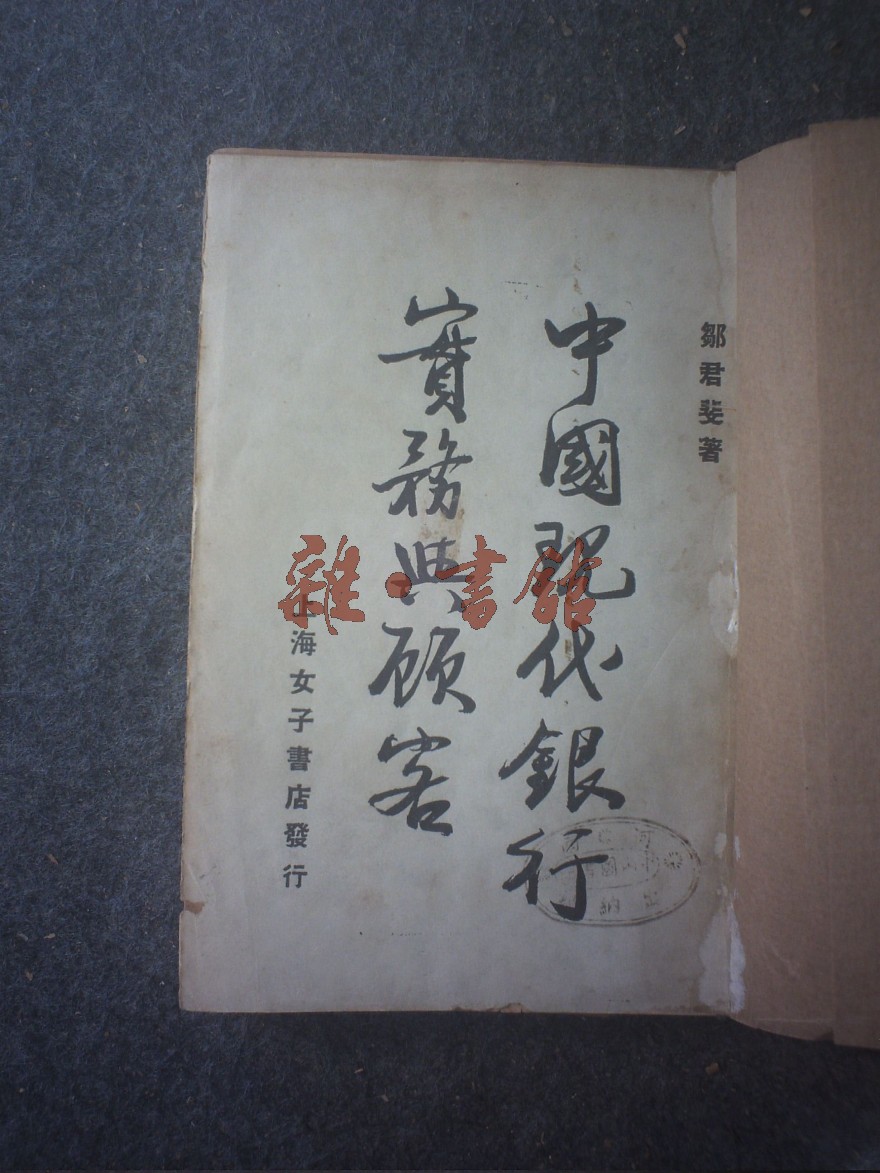 鄒君斐著
中國現代銀行
實務與顧客
上海女子書店發行
雜·書館